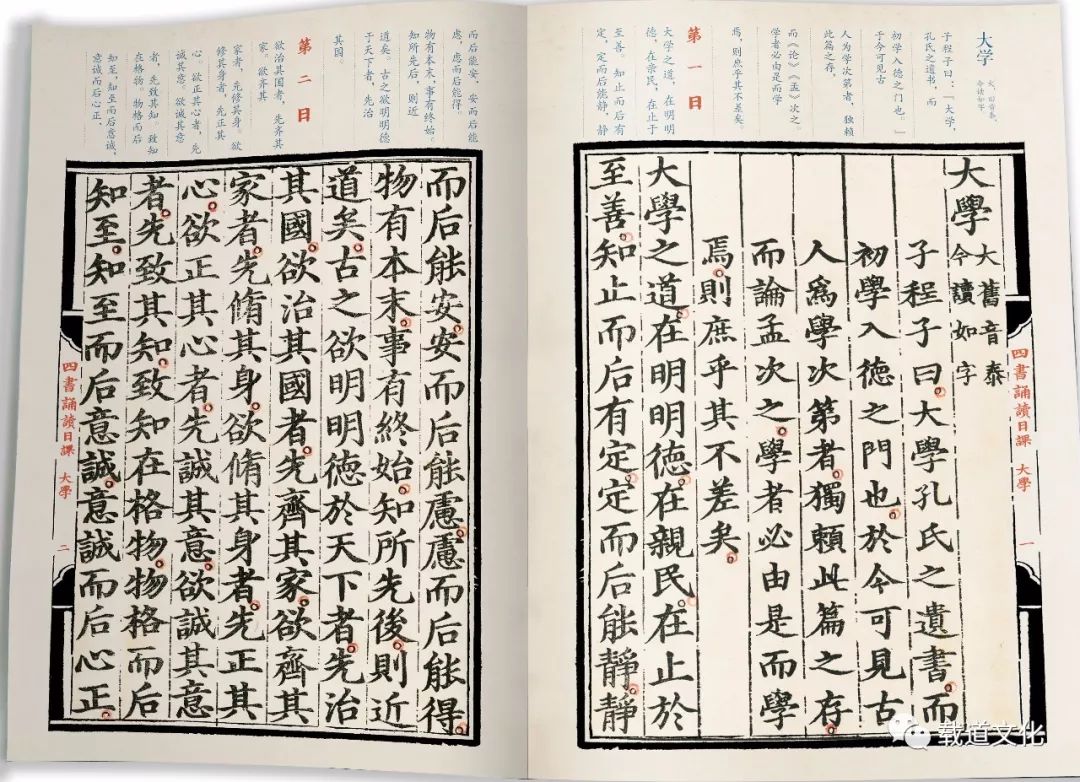 大学
大，旧音泰，
今读如字。
子程子曰：「大学，
孔氏之遗书，而
初学入德之门也。」
于今可见古
人为学次第者，独赖
此篇之存，
而《论》《孟》次之。
学者必由是而学
焉，则庶乎其不差矣。
第一日
大学之道，在明明
德，在亲民，在止于
至善。知止而后有
定，定而后能静，静
大學
大舊音泰
今讀如字
子程子曰。大學孔氏之遺書。而
初學入德之門也。於今可見古
人爲學次第者。獨賴此篇之存。
而論孟次之。學者必由是而學
焉。則庶乎其不差矣。
大學之道。在明明德。在親民。在止於
至善。知止而后有定。定而后能靜。靜
四書誦讀日課 大學 一
而后能安，安而后能
虑，虑而后能得。
物有本末，事有终始。
知所先后，则近
道矣。古之欲明明德
于天下者，先治
其国。
第二日
欲治其国者，先齐其
家。欲齐其
家者，先修其身。欲
修其身者，先正其
心。欲正其心者，先
诚其意。欲诚其意
者，先致其知。致知
在格物。物格而后
知至，知至而后意诚，
意诚而后心正。
而后能安。安而后能慮。慮而后能得。
物有本末。事有終始。知所先後。則近
道矣。古之欲明明德於天下者。先治
其國。欲治其國者。先齊其家。欲齊其
家者。先脩其身。欲脩其身者。先正其
心。欲正其心者。先誠其意。欲誠其意
者。先致其知。致知在格物。物格而后
知至。知至而后意誠。意誠而后心正。
四書誦讀日課 大學 二
载道文化